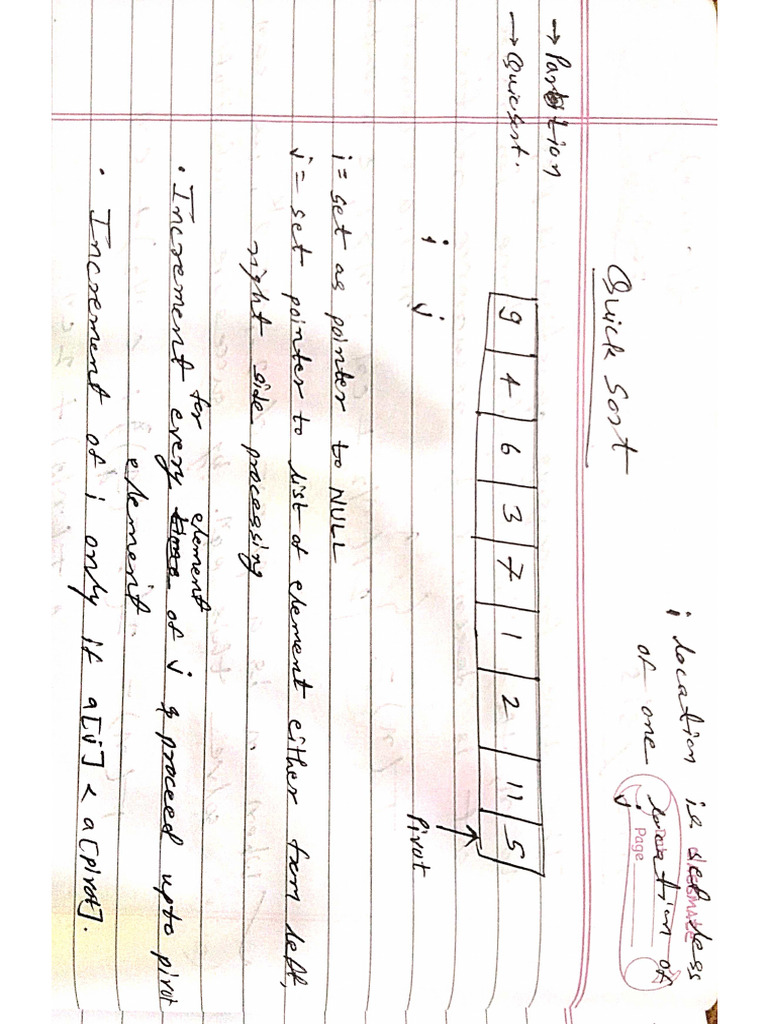 i location is set less
of one location of
j
CLASSMATE
Date
Page
Quick Sort
→ Partition
→ Quicksort.
9 4 6 3 7 1 2 11 5
i j
Pivot
i = set as pointer to NULL
j = set pointer to list of element either from left,
right side processing
• Increment for every element of j & proceed upto pivot
element.
• Increment of i only if a[j] < a[pivot].